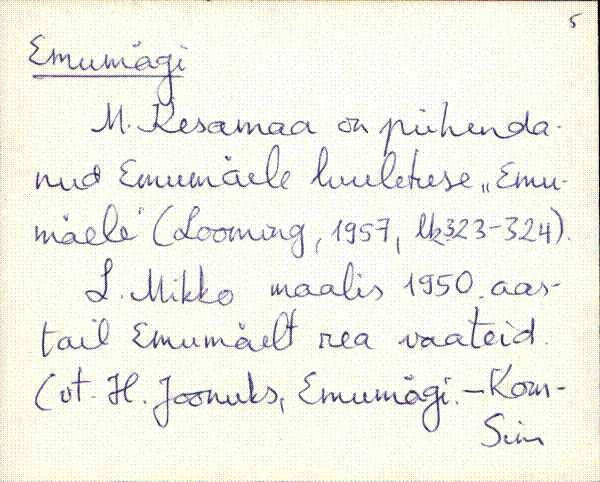 5
Emumägi
M. Kesamaa on pühenda-
nud Emumäele luuletuse „Emu-
mäele" (Looming, 1957, lk 323-324).
L. Mikko maalis 1950. aas-
tail Emumäelt rea vaateid.
(vt. H. Joonuks, Emumägi. – Kom-